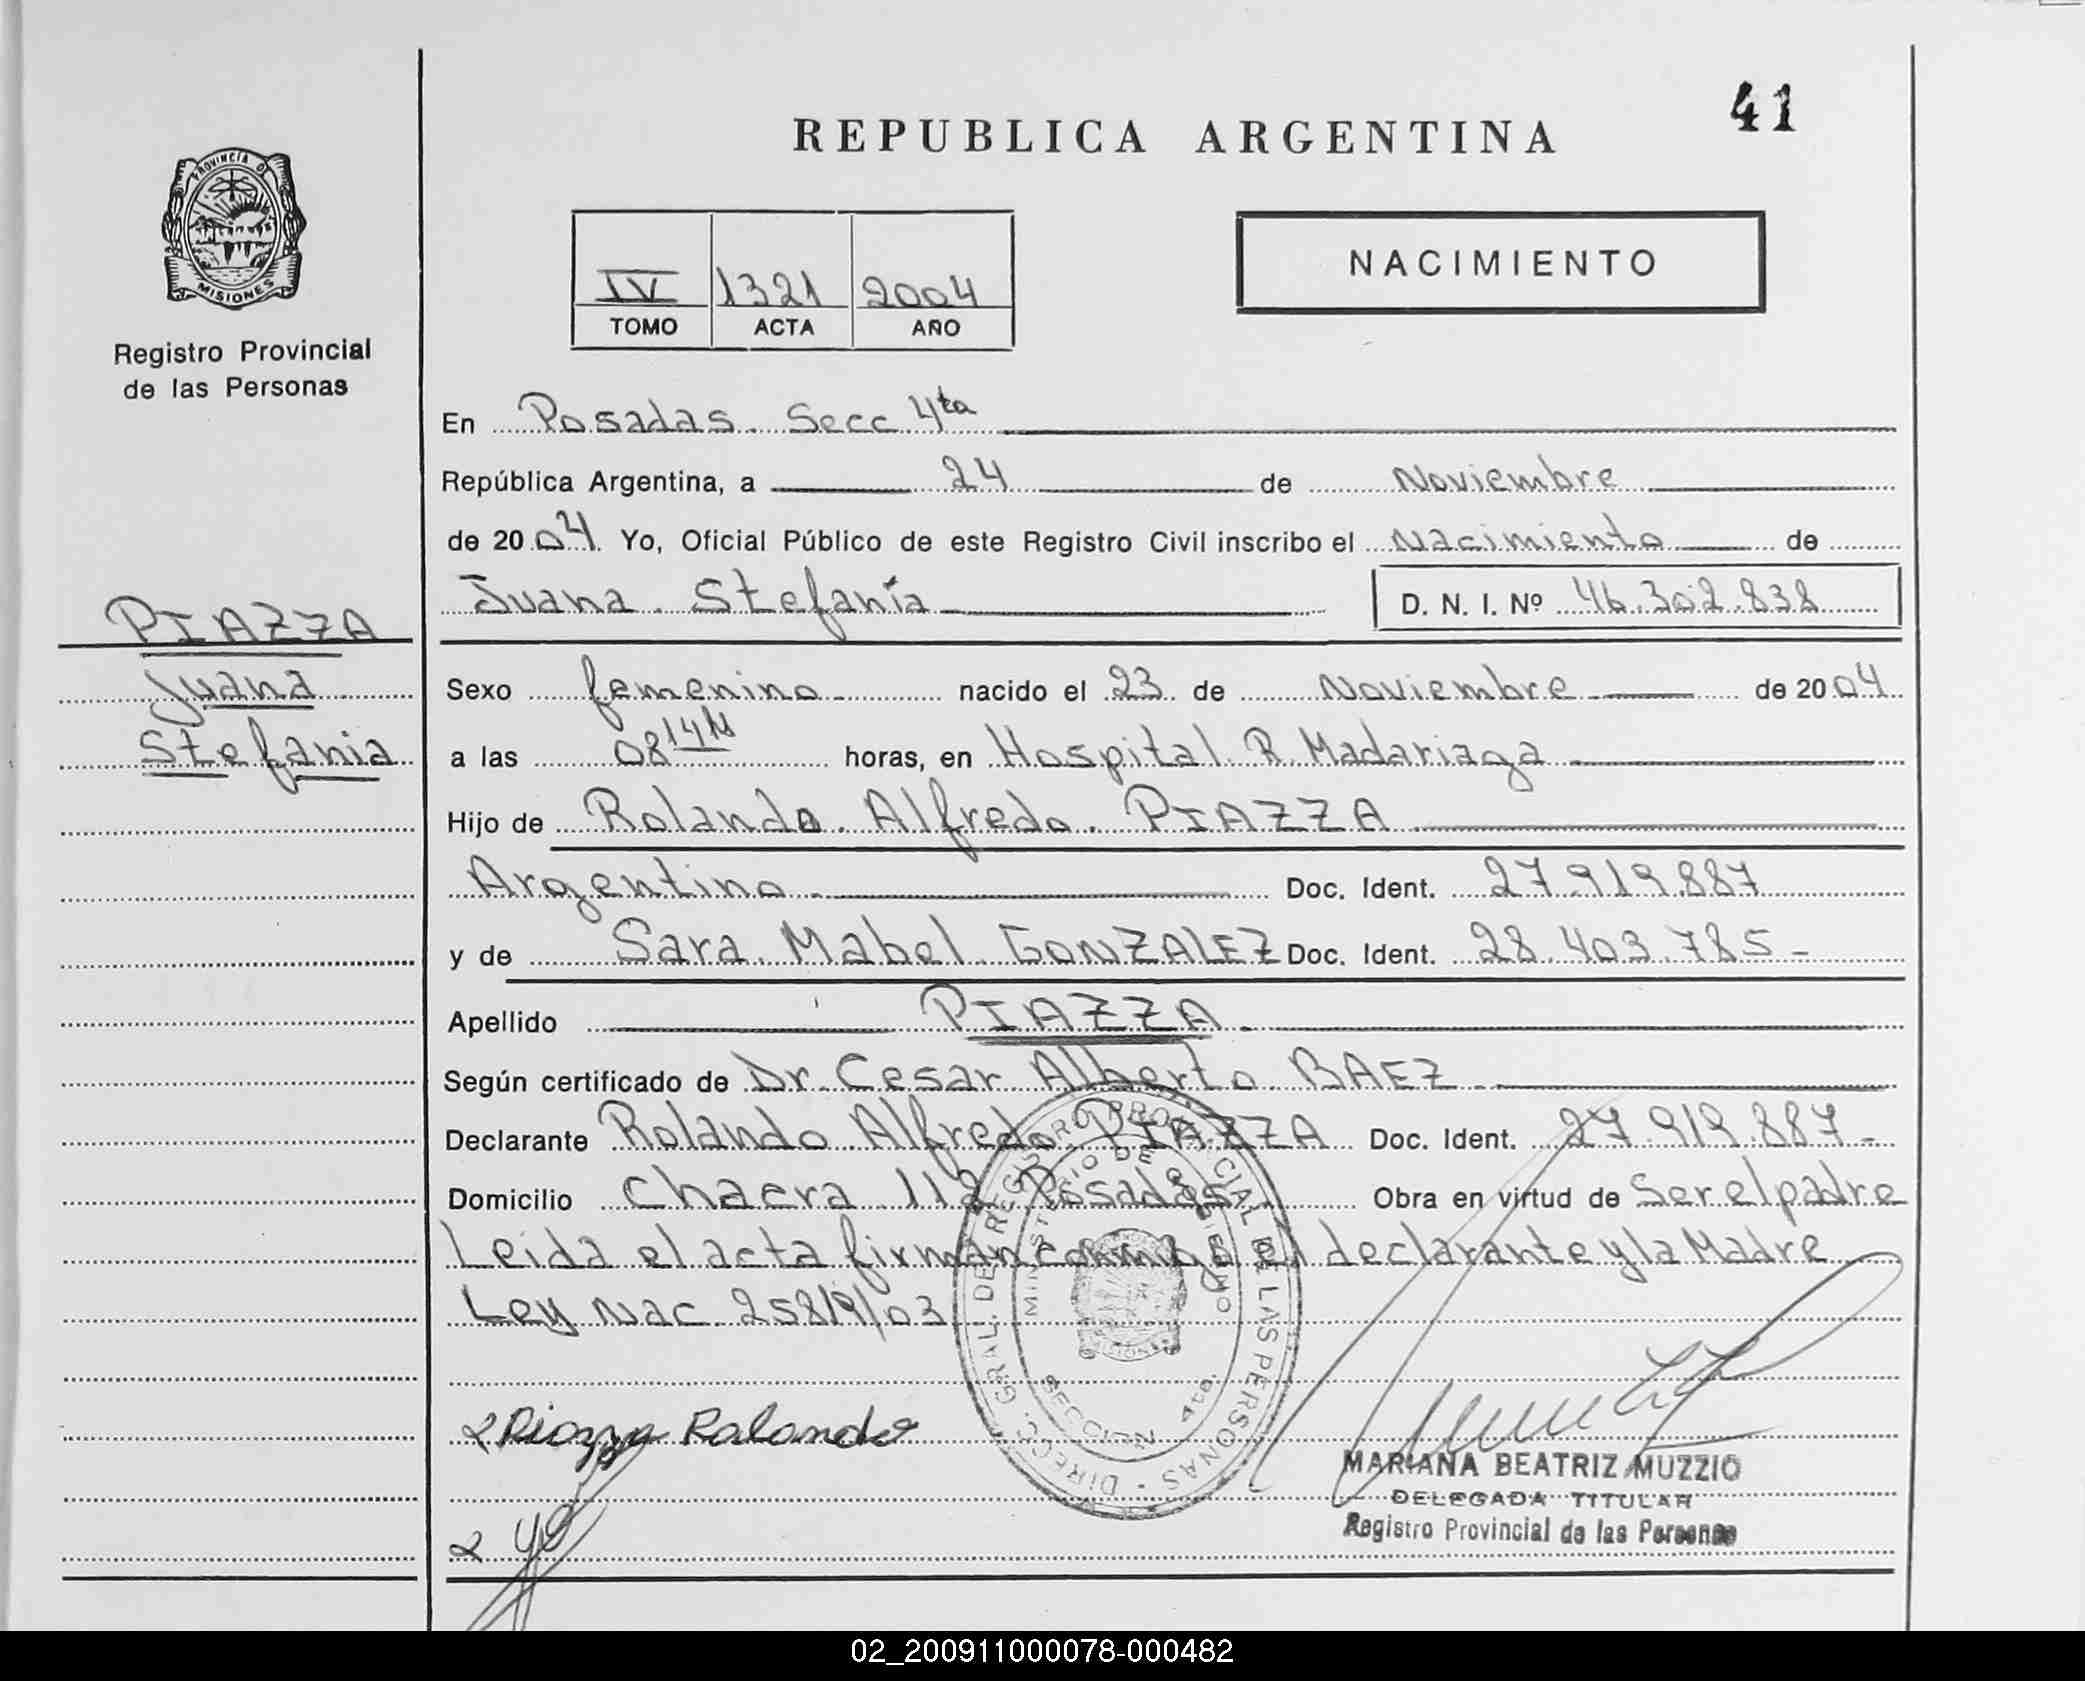 41
REPUBLICA ARGENTINA
PROVINCIA DE
MISIONES
Registro Provincial
de las Personas
IV 1321 2004
TOMO ACTA AÑO
NACIMIENTO
En Posadas. Secc 4ta
República Argentina, a 24 de Noviembre
de 2004 Yo, Oficial Público de este Registro Civil inscribo el Nacimiento de
Juana Stefanía D. N. I. Nº 46.302.838
PIAZZA
Juana
Stefania
Sexo femenino nacido el 23 de Noviembre de 2004
a las 08 14 M horas, en Hospital R. Madariaga
Hijo de Rolando Alfredo PIAZZA
Argentino Doc. Ident. 27.919.887
y de Sara Mabel GONZALEZ Doc. Ident. 28.403.785-
Apellido PIAZZA
Según certificado de Dr. Cesar Alberto BAEZ
Declarante Rolando Alfredo PIAZZA Doc. Ident. 27.919.887-
Domicilio Chacra 112 Posadas Obra en virtud de Ser el padre
Leida el acta firman conmigo el declarante y la Madre
Ley Nac. 25819/03
DIRECC. GRAL. DE REGISTRO PROVINCIAL DE LAS PERSONAS
MINISTERIO DE GOBIERNO
MISIONES
SECCION 4ta.
Piazza Rolando
MARIANA BEATRIZ MUZZIO
DELEGADA TITULAR
Registro Provincial de las Personas
02_200911000078-000482